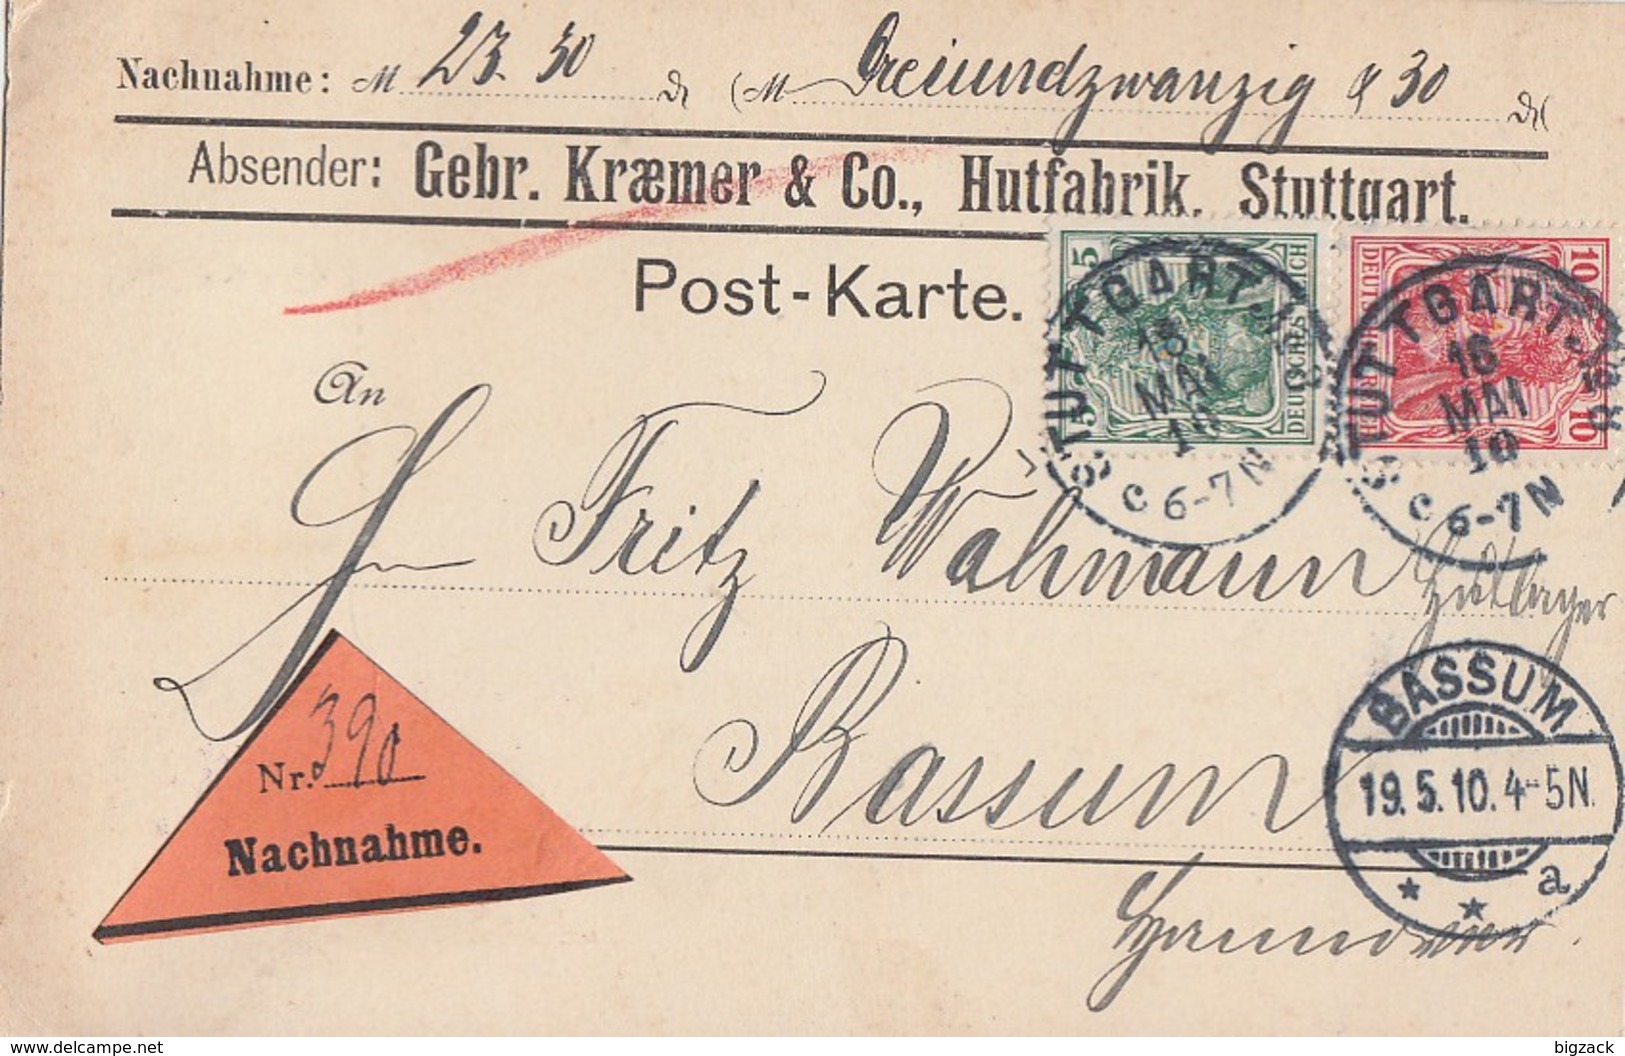 Nachnahme: M 23. 30 ₰ (M Dreiundzwanzig & 30 ₰(
Absender: Gebr. Kræmer & Co., Hutfabrik. Stuttgart.
Post-Karte.
5 5 DEUTSCHES REICH
10 10
STUTTGART
MAI
C 6-7N
STUTTGART
16
MAI
10
C 6-7N
An
Fritz Wähmann Hutlager
Bassum
Hannover.
BASSUM
19.5.10.4-5N.
* * a
Nr. 390
Nachnahme.
www.delcampe.net
bigzack